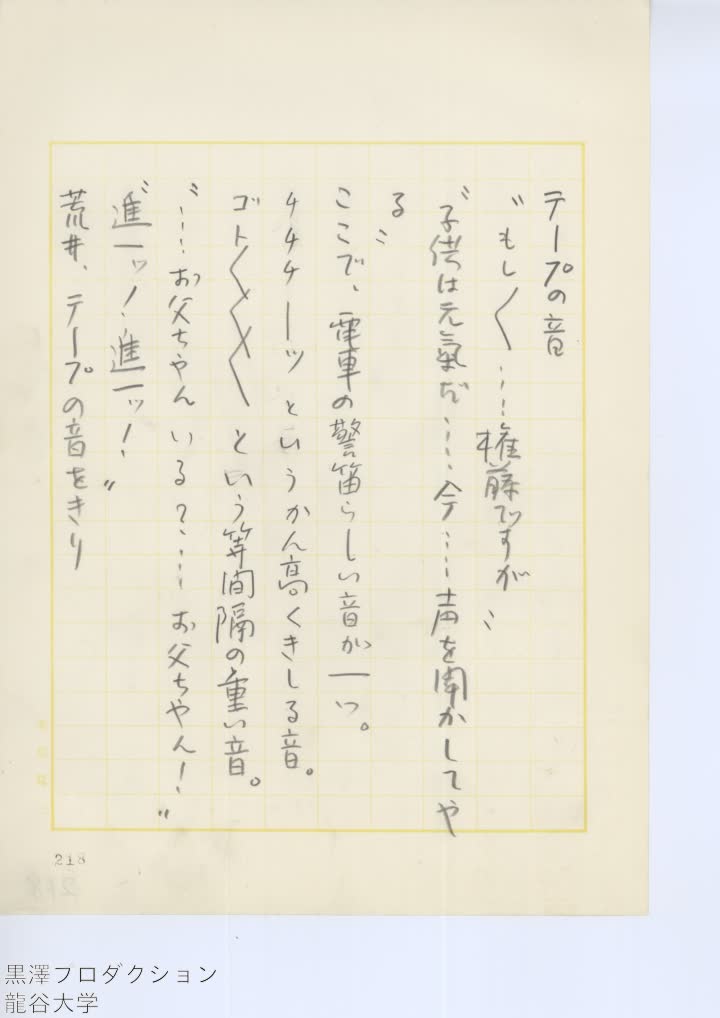 テープの音
〝もし〱……権藤ですが〟
〝子供は元氣だ……今……声を聞かしてや
る〟
ここで、電車の警笛らしい音が一つ。
チチチーッというかん高くきしる音。
ゴト〱〱〱という等間隔の重い音。
〝……お父ちゃんいる？……お父ちゃん！〟
〝進一ッ！進一ッ！〟
荒井、テープの音をきり
218
黒澤プロダクション
龍谷大学